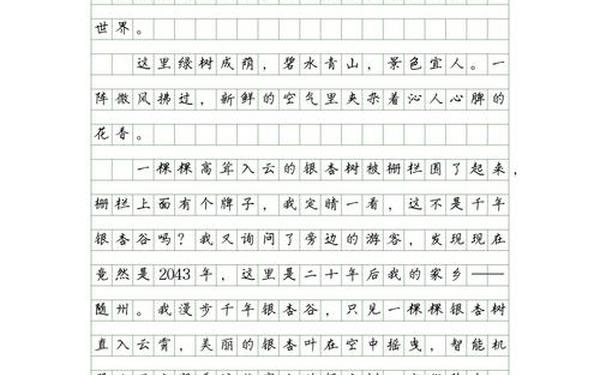 世界。
这里绿树成荫，碧水青山，景色宜人。一
阵微风拂过，新鲜的空气里夹杂着沁人心脾的
花香。
一棵棵高耸入云的银杏树被栅栏围了起来，
栅栏上面有个牌子，我定睛一看，这不是千年
银杏谷吗？我又询问了旁边的游客，发现现在
竟然是2043年，这里是二十年后我的家乡——
随州。我漫步千年银杏谷，只见一棵棵银杏树
直入云霄，美丽的银杏叶在空中摇曳，智能机